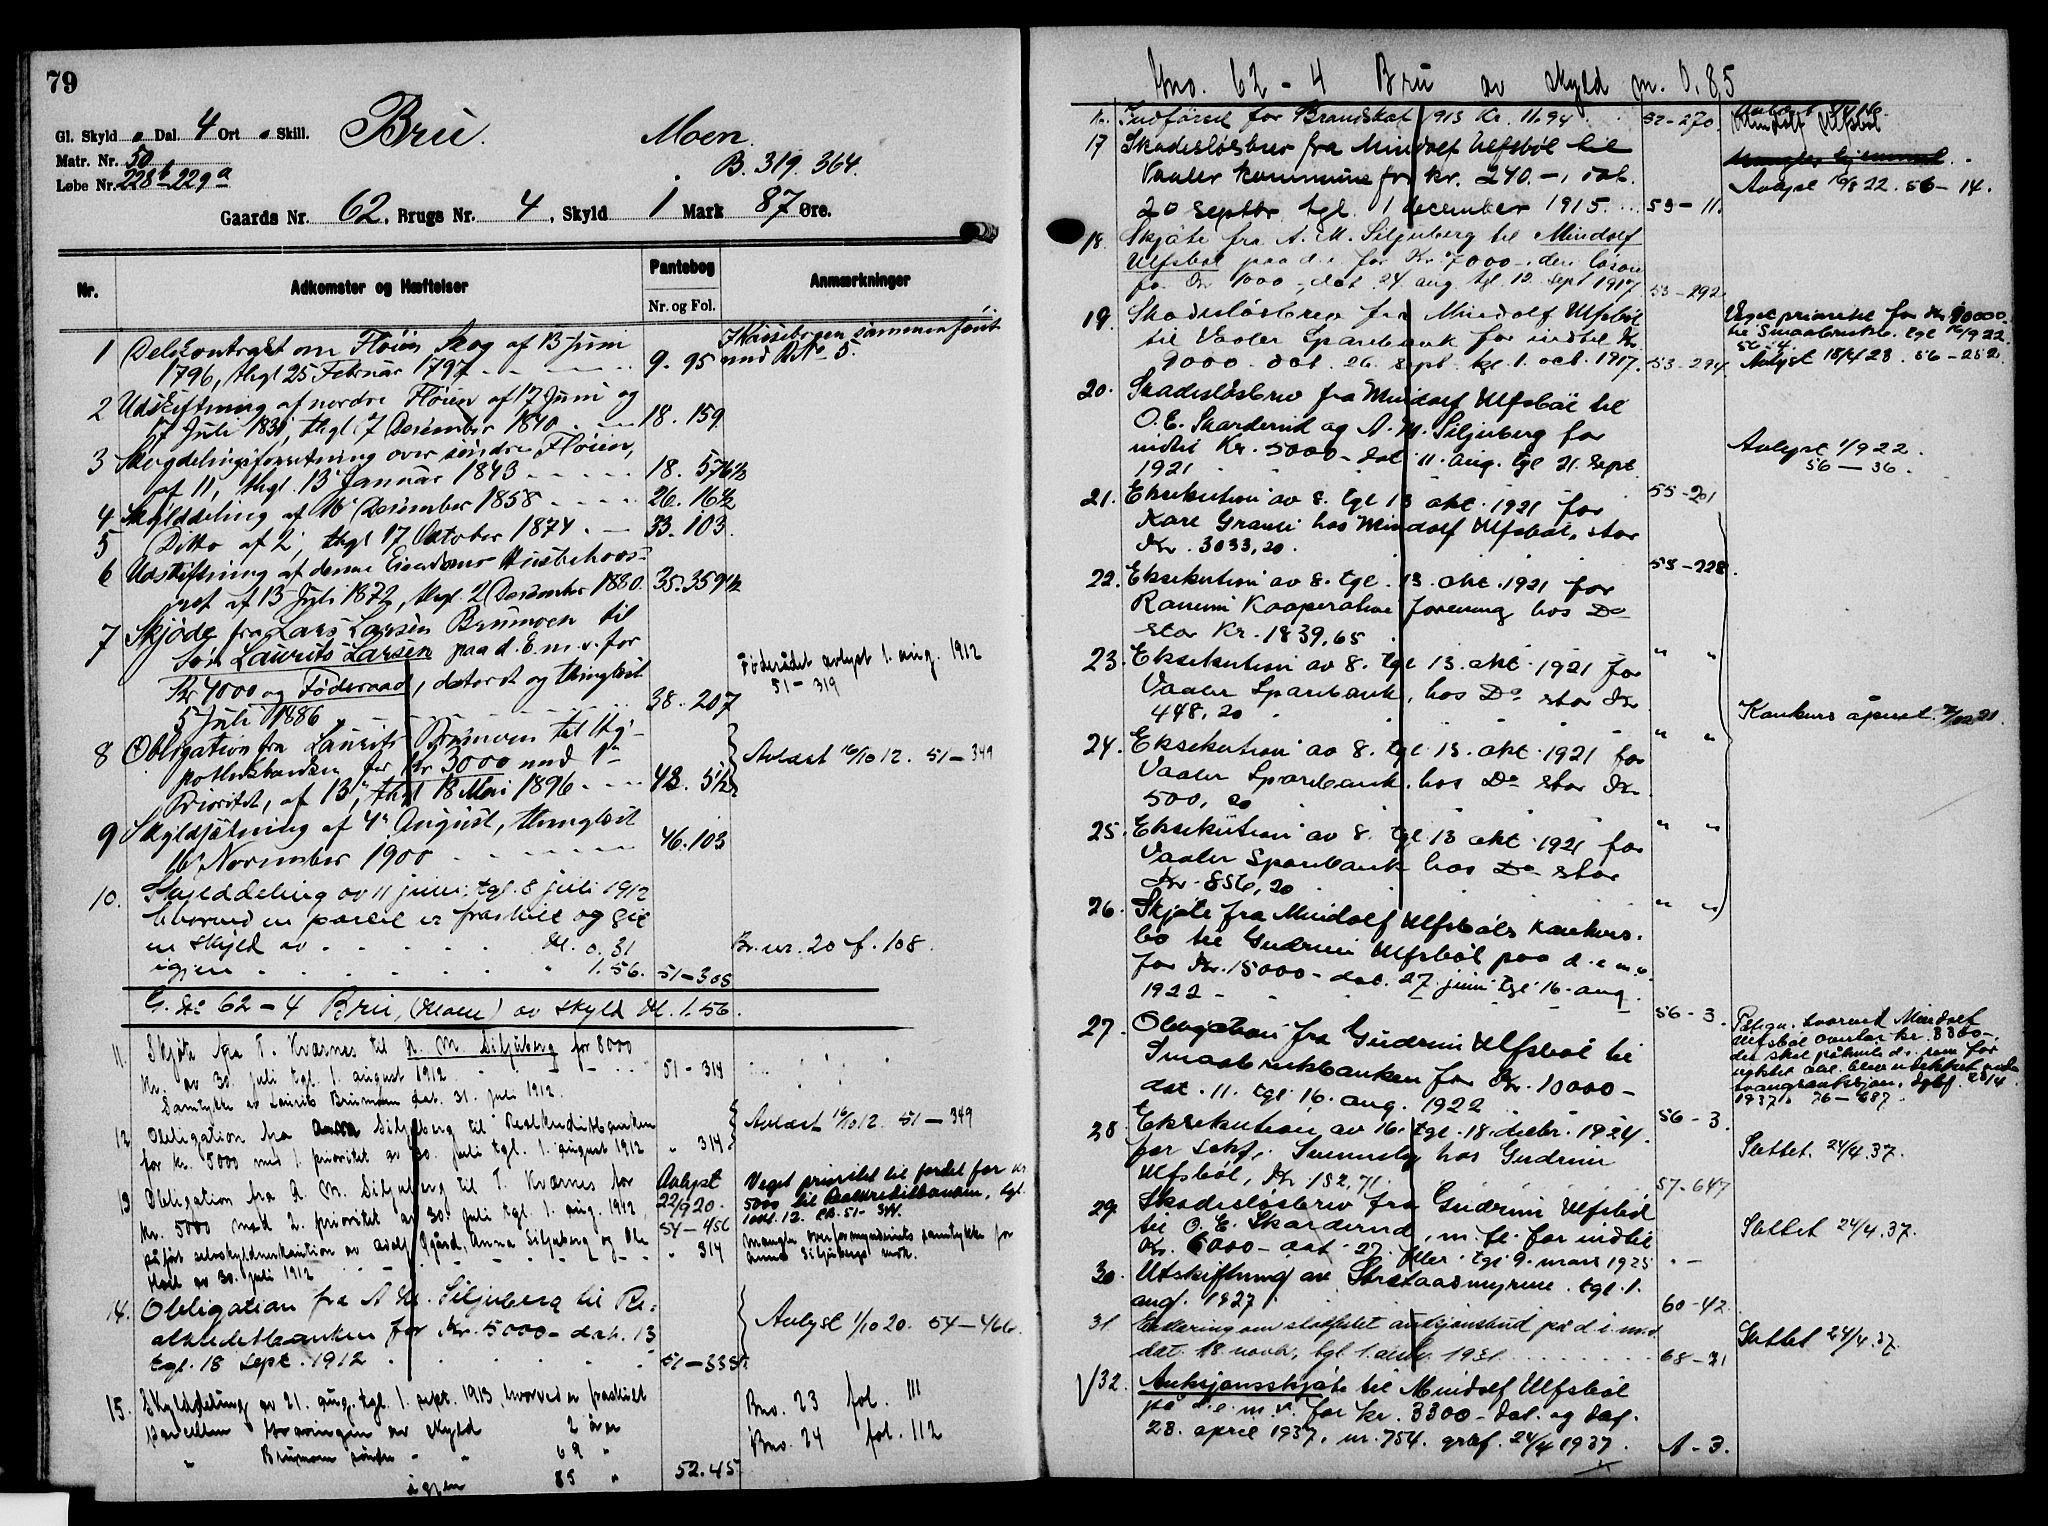 79
Gl. Skyld " Dal. 4 Ort " Skill. Bru. Moen.
Matr. Nr. 50 B. 319. 364.
Løbe Nr. 228b-229a
Gaards Nr. 62, Brugs Nr. 4, Skyld 1 Mark 87 Øre.
Nr. Adkomster og Hæftelser Pantebog Anmærkninger
Nr. og Fol.
1 Delekontrakt om Fløien Skog af 13 Juni
1796, thgl 25 Februar 1797 9. 95
2 Udskiftning af nordre Fløien af 17 Juni og
17 Juli 1839, thgl 7 December 1840 18. 159
3 Skogdelingsforretning over søndre Fløien,
af 11, thgl. 13 Januar 1843 18. 576b
4 Skylddeling af 16 December 1858 26. 16b
5 Ditto af 2, thgl 17 Oktober 1874 33. 103.
6 Udskiftning af denne Eiendoms
af 13 Juli 1872, thgl. 2 December 1880. 35. 359b
7 Skjøde fra Lars Larsen Brumoen til
Søn Laurits Larsen paa d. E. m. v. for
Kr 4000 og Føderaad, dateret og thinglæst
5 Juli 1886 38. 207
Føderådet avlyst 1. aug. 1912
51-319
8 Obligation fra Laurits Brumoen til Hy-
pothekbanken for Kr 3000 med 1ste
Prioritet, af 13, thgl 18 Mai 1896 43. 51b
Avlæst 16/10 12. 51-349
9 Skyldsætning af 4 August, thinglæst
16 November 1900 46. 103
10. Skylddeling av 11 juni. tgl. 8 juli 1912
hvorved en parcel er fraskilt og git
en skyld av M. 0,31 Br. nr. 20 f. 108.
igjen " 1.56. 51-305
G. No 62-4 Bru, (Moen) av skyld M. 1.56.
11. Skjøte fra T. Kværnes til A. M. Siljuberg for 8000
Kr. av 30. juli tgl. 1. august 1912. 51-314
Samtykke av Laurits Brumoen dat. 31. juli 1912.
12. Obligation fra Siljuberg til Realkreditbanken
for kr. 5000 med 1. prioritet av 30. juli tgl. 1. august 1912 " 314
Avlæst 16/10 12. 51-349
13. Obligation fra A. M. Siljuberg til T. Kværnes for Avlyst
Kr. 5000 med 2. prioritet av 30. juli tgl. 1. aug. 1912, 22/9 20.
påført selvskyldnerkaution av Adolf Ogård, Anna Siljuberg og Ole 54-456
Moen av 30. juli 1912 " 314
Veget prioritet til fordel for kr
5000 til Realkreditbanken, tgl.
1 okt. 12. PB. 51-344.
mangler overformynderiets samtykke for
Anna Siljubergs vedk.
14. Obligation fra A. M. Siljuberg til Re-
alkreditbanken for Kr. 5000- dat. 13
tgl. 18 Sept. 1912 51-335
Avlyst 1/10 20. 54-466.
15. Skylddeling av 21. aug. tgl. 1. sept. 1913, hvorved er fraskilt
parcellen Korsvingen av skyld 2 øre Bno. 23 fol. 111
" Brumoen søndre " " 69 " Bno. 24 fol. 112
igjen 85 " 52.45
Gno. 62-4 Bru av skyld m. 0,85
16. Indførsel for Brandskat 1913 Kr. 11.94 52-270.
17 Skadesløsbrev fra Mindolf Ulfsbøl til
Vaaler kommune for kr. 240.-, dat.
20 septbr. tgl. 1 december 1915 53-11.
Avlyst 16/8 22. 56-14.
18. Skjøte fra A. M. Siljuberg til Mindolf
Ulfsbøl paa d.e. for Kr. 7000-, derav løsøre
for Kr 1000-, dat. 24 aug. tgl. 12. sept 1917. 53-292
19. Skadesløsbrev fra Mindolf Ulfsbøl
til Vaaler Sparebank for indtil Kr.
9000. dat. 26. sept. tgl. 1. oct. 1917. 53-294
Veget prioritet for Kr 10000
til Smaabrukb. tgl 16/9 22.
56-4.
Avlyst 15/4 23. 56-252.
20. Skadesløsbrev fra Mindolf Ulfsbøl til
O. E. Skarderud og A. M. Siljuberg for
indtil Kr. 5000- dat. 11. aug. tgl 21. sept
1921 55-201
Avlyst 1/9 22.
56-36.
21. Eksekution av 8. tgl 13 okt. 1921 for
Kare Granli hos Mindolf Ulfsbøl, stor
Kr. 3033,20. 55-228.
22. Eksekution av 8. tgl. 13. okt. 1921 for
Kooperative forening hos Do
stor Kr. 1839,65. " "
23. Eksekution av 8. tgl 13. okt. 1921 for
Vaaler Sparebank, hos Do stor Kr
448,20 " "
Konkurs åpnet 7/12 21.
24. Eksekution av 8. tgl. 13. okt. 1921 for
Vaaler Sparebank, hos Do stor Kr.
500,20 " "
25. Eksekution av 8. tgl 13 okt. 1921 for
Vaaler Sparebank hos Do stor
Kr. 856,20 " "
26. Skjøte fra Mindolf Ulfsbøls konkurs-
bo til Gudrun Ulfsbøl paa d. e. m. v.
for Kr. 15000- dat. 27. juni tgl. 16. aug.
1922 56-3.
27. Obligation fra Gudrun Ulfsbøl til
Smaabrukbanken for Kr. 10000-
dat. 11. tgl. 16. aug. 1922 56-3.
Påtegn. hvorved Mindolf
Ulfsbøl overtar kr. 3300-,
det skal påhvile d.e. som for
ublev udekket ved
tvangsauksjon, dgbf. 23/4
1937. 76-687.
28. Eksekution av 16. tgl. 18. decbr. 1924.
for sakf. Svenneby hos Gudrun
Ulfsbøl, Kr 152,71. 57-647
Slettet 24/4.37.
29. Skadesløsbrev fra Gudrun Ulfsbøl
til O. E. Skarderud, m. fl. for indtil
Kr. 6000- dat. 27. tgl 9. mars 1925 " -
Slettet 24/4.37.
30. Utskiftning av Strætaasmyrene. tgl. 1.
aug. 1927. 60-42.
31 Erklæring om stadfestet auksjonsbud på d. e. m. v.
dat. 18. novbr, tgl. 1. 1931. 68-21
Slettet 24/4.37.
√32. Auksjonsskjøte til Mindolf Ulfsbøl
på d. e. m. v. for kr. 3300- dat. og dgf.
23. april 1937. nr. 754. grbf. 24/4 1937. A-3.